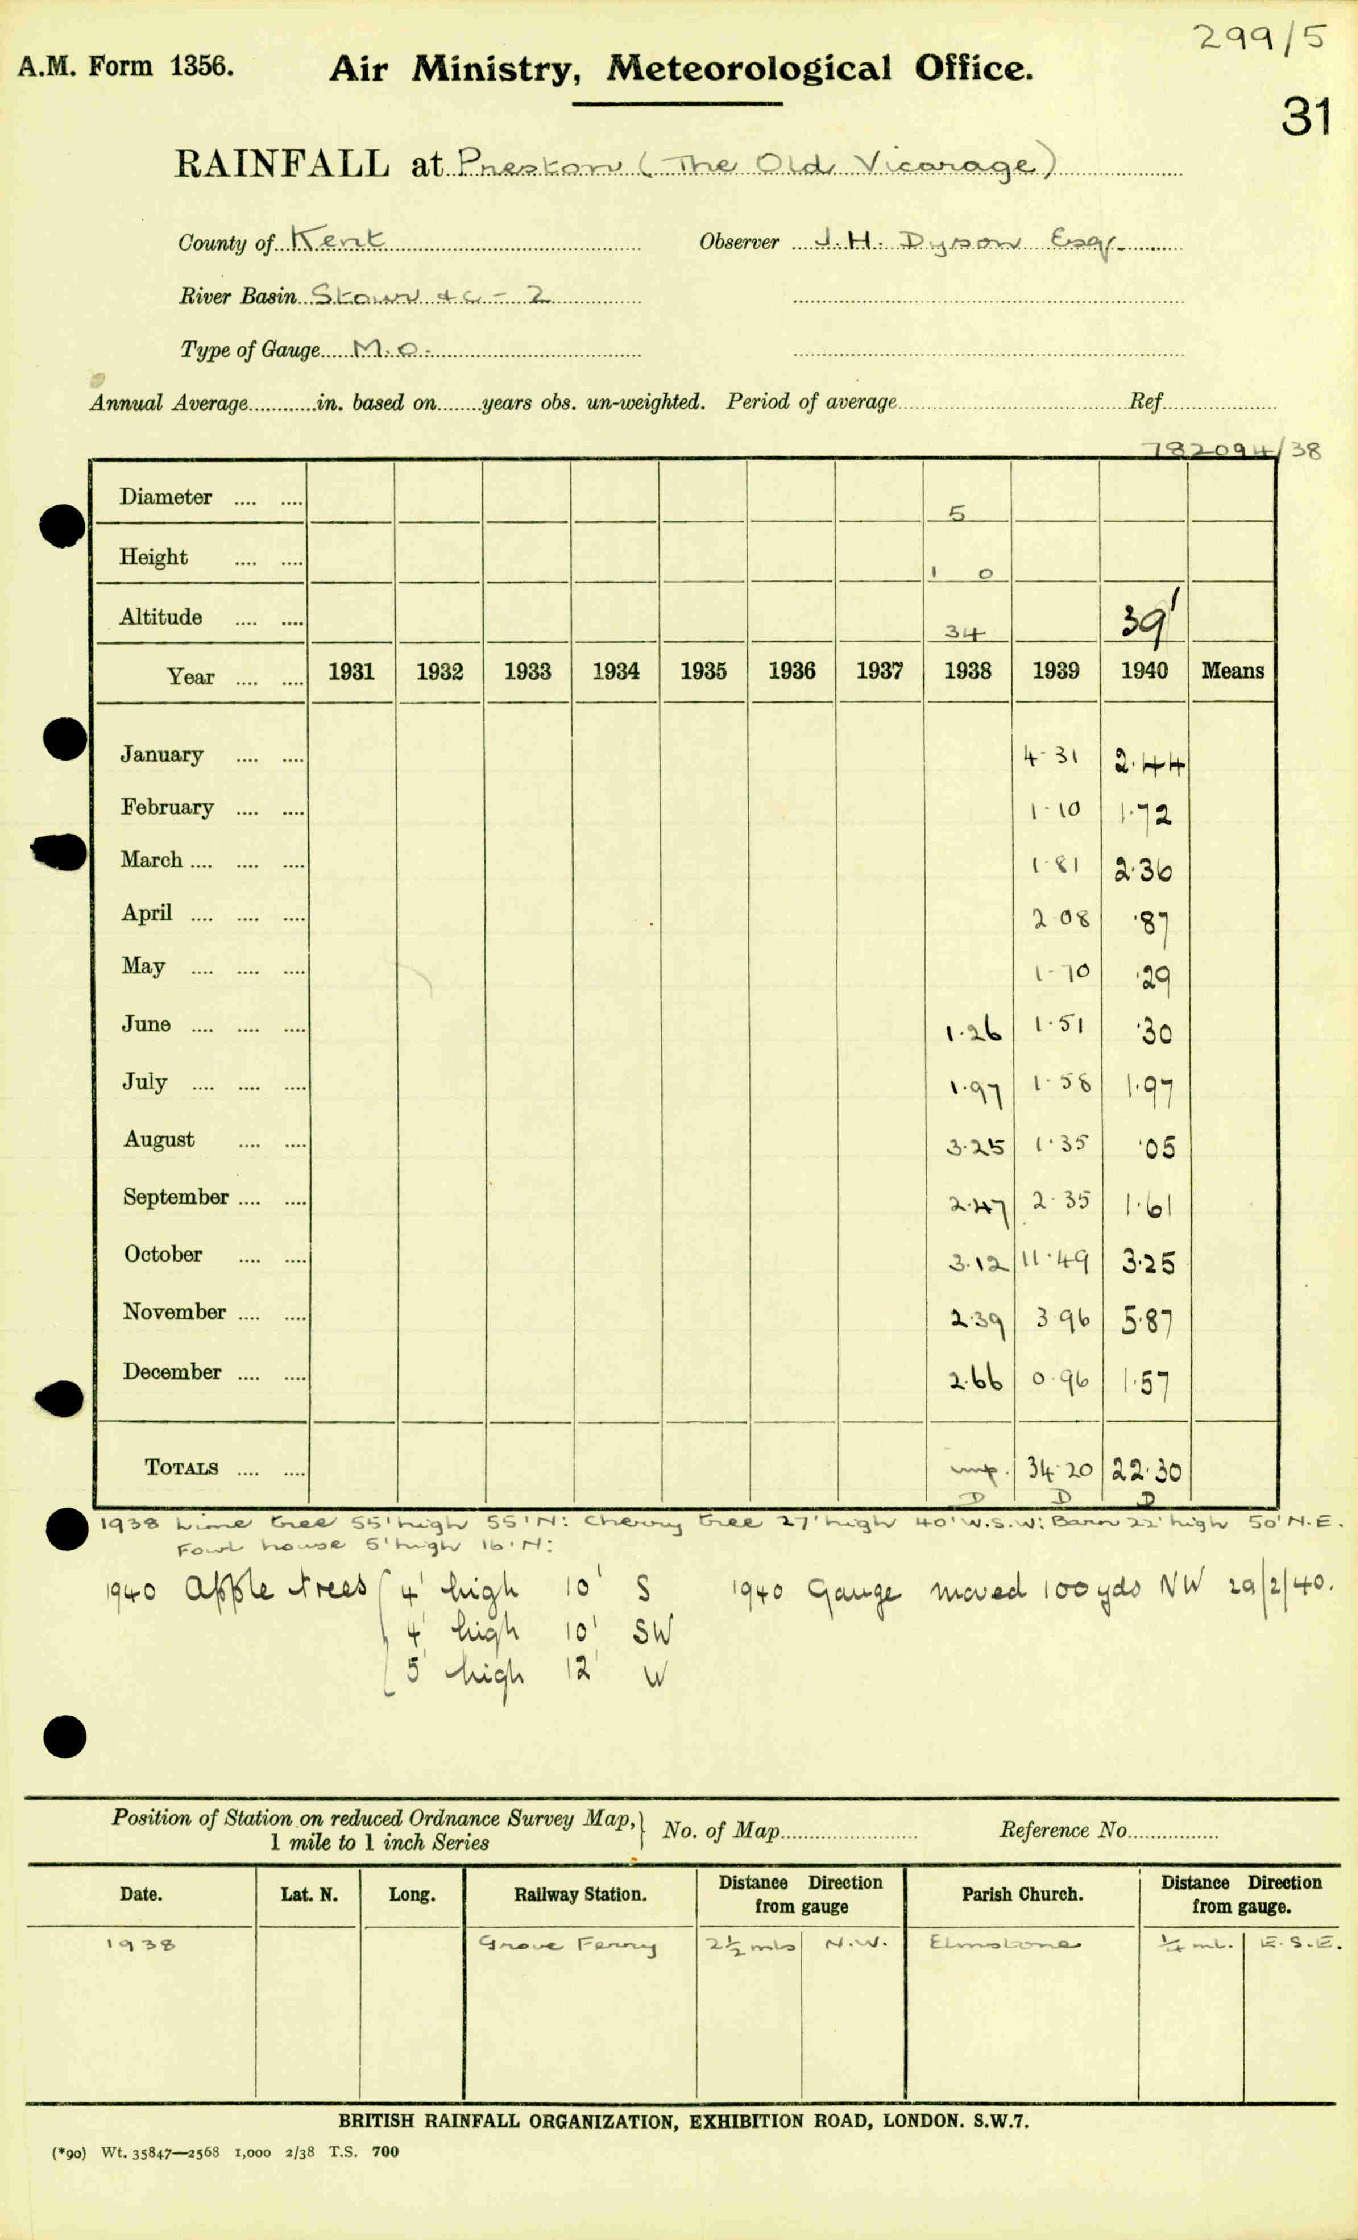 299/5
A.M. Form 1356. Air Ministry, Meteorological Office.
31
RAINFALL at Preston (The Old Vicarage)
County of Kent Observer J.H. Dyson Esq.
River Basin Stour &c - 2
Type of Gauge M.O.
Annual Average............in. based on........years obs. un-weighted. Period of average........ Ref........
782094/38
Diameter .... .... 5
Height .... .... 1 0
Altitude .... .... 34 39'
Year .... .... 1931 1932 1933 1934 1935 1936 1937 1938 1939 1940 Means
January .... .... 4.31 2.44
February .... .... 1.10 1.72
March .... .... .... 1.81 2.36
April .... .... .... 2.08 .87
May .... .... .... 1.70 .29
June .... .... .... 1.26 1.51 .30
July .... .... .... 1.97 1.58 1.97
August .... .... 3.25 1.35 .05
September .... .... 2.47 2.35 1.61
October .... .... 3.12 11.49 3.25
November .... .... 2.39 3.96 5.87
December .... .... 2.66 0.96 1.57
TOTALS .... .... imp. 34.20 22.30
D D D
1938 Lime tree 55' high 55' N: Cherry tree 27' high 40' W.S.W: Barn 22' high 50' N.E.
Fowl house 5' high 16' N:
1940 Apple trees 4' high 10' S 1940 Gauge moved 100 yds NW 29/2/40.
4' high 10' SW
5' high 12' W
Position of Station on reduced Ordnance Survey Map, } No. of Map........ Reference No........
1 mile to 1 inch Series
Date. Lat. N. Long. Railway Station. Distance Direction from gauge Parish Church. Distance Direction from gauge.
1938 Grove Ferry 2½ mls N.W. Elmstone ¼ ml. E.S.E.
BRITISH RAINFALL ORGANIZATION, EXHIBITION ROAD, LONDON. S.W.7.
(*90) Wt. 35847—2568 1,000 2/38 T.S. 700